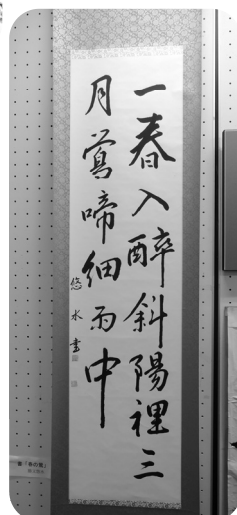 一春入酔斜陽裡三
月鶯啼細雨中
悠水書